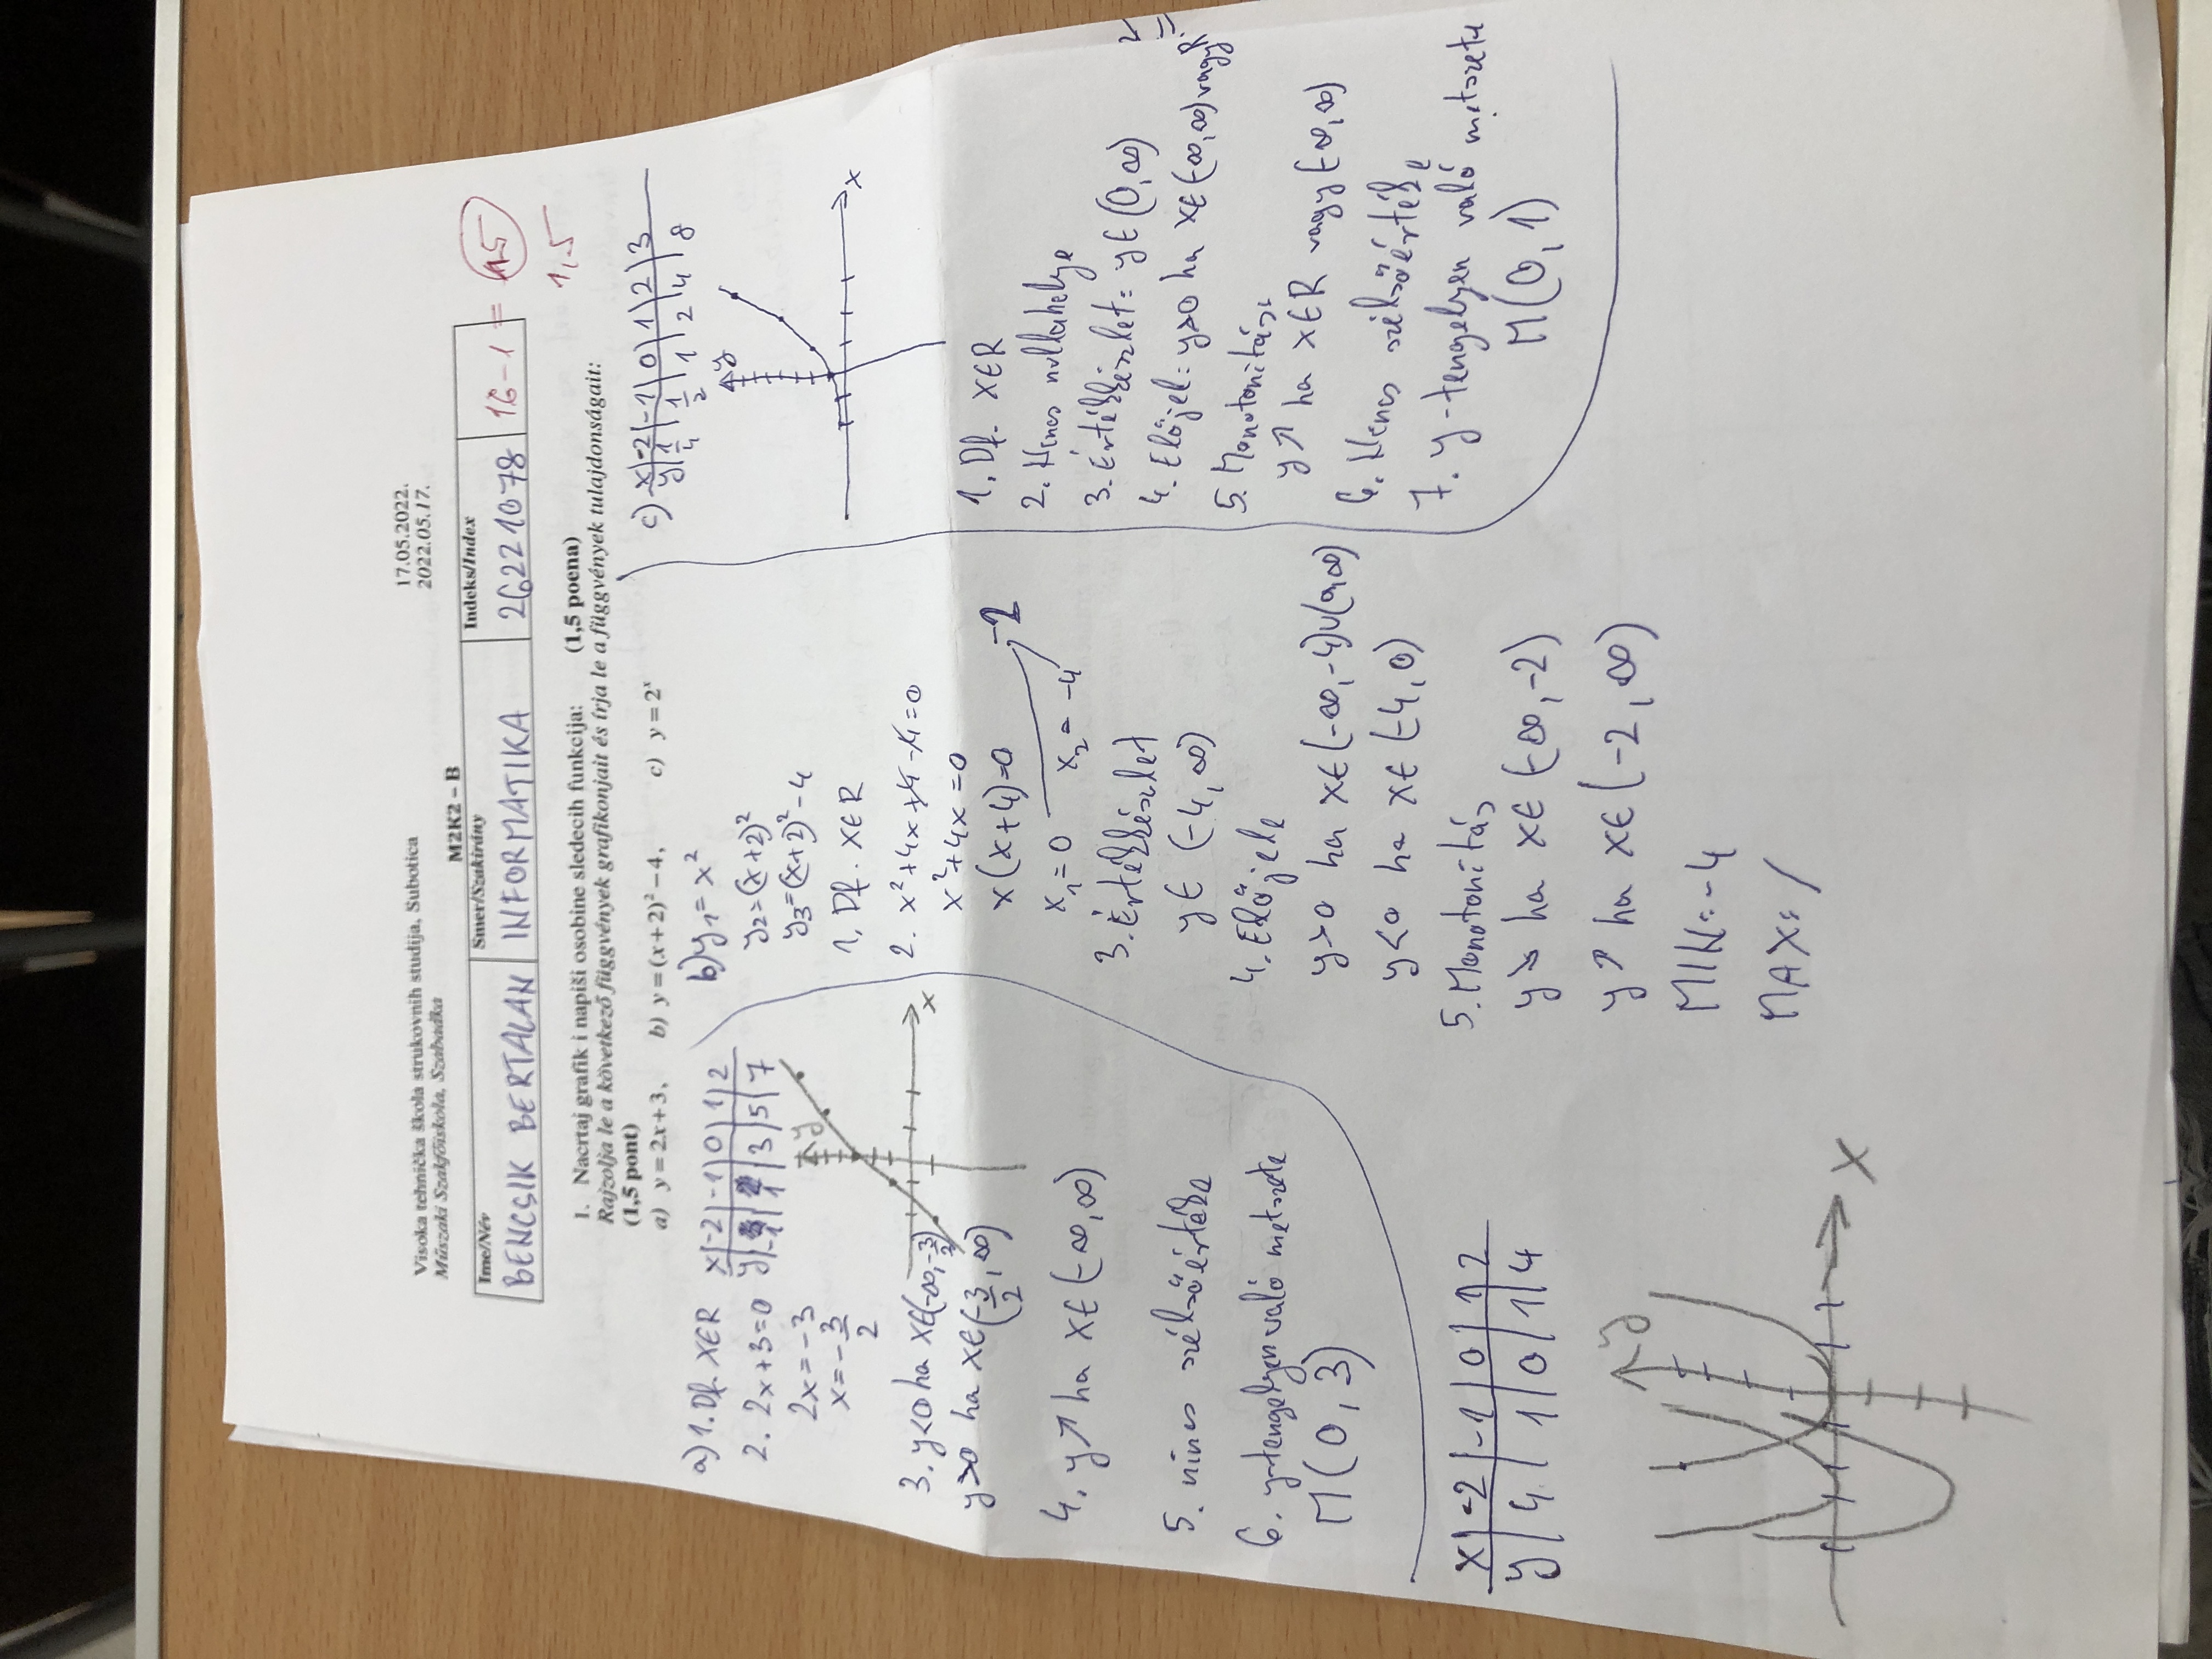 Visoka tehnička škola strukovnih studija, Subotica
Műszaki Szakfőiskola, Szabadka
17.05.2022.
2022.05.17.
M2K2 – B
Ime/Név
BENCSIK BERTALAN
Smer/Szakirány
INFORMATIKA
Indeks/Index
26221078
16-1 = 15
1,5
1. Nacrtaj grafik i napiši osobine sledecih funkcija: (1,5 poena)
Rajzolja le a következő függvények grafikonjait és írja le a függvények tulajdonságait:
(1,5 pont)
a) y = 2x + 3, b) y = (x + 2)² – 4, c) y = 2ˣ
a) 1. Df. X∈R
x | -2 | -1 | 0 | 1 | 2
y | -1 | 1 | 3 | 5 | 7
2. 2x+3=0
2x=-3
x=-3/2
y
x
3. y<0 ha x∈(-∞,-3/2)
y>0 ha x∈(-3/2, ∞)
4. y↗ ha x∈(-∞,∞)
5. nincs szélsőértéke
6. y-tengelyen való metszete
M(0,3)
x | -2 | -1 | 0 | 1 | 2
y | 4 | 1 | 0 | 1 | 4
y
x
b) y₁=x²
y₂=(x+2)²
y₃=(x+2)²-4
1. Df. X∈R
2. x²+4x+4-4=0
x²+4x=0
x(x+4)=0
-2
x₁=0 x₂=-4
3. Értékkészlet
y∈ (-4,∞)
4. Előjele
y>0 ha x∈(-∞,-4)∪(0,∞)
y<0 ha x∈(-4,0)
5. Monotonitás
y↘ ha x∈(-∞,-2)
y↗ ha x∈(-2,∞)
MIN=-4
MAX= /
c) x | -2 | -1 | 0 | 1 | 2 | 3
y | 1/4 | 1/2 | 1 | 2 | 4 | 8
y
x
1. Df. X∈R
2. Nincs nullahelye
3. Értékkészlet= y∈(0,∞)
4. Előjel: y>0 ha x∈(-∞,∞) vagy R
5. Monotonitás:
y↗ ha x∈R vagy (-∞,∞)
6. Nincs szélsőértéke
7. y-tengelyen való metszete
M(0,1)